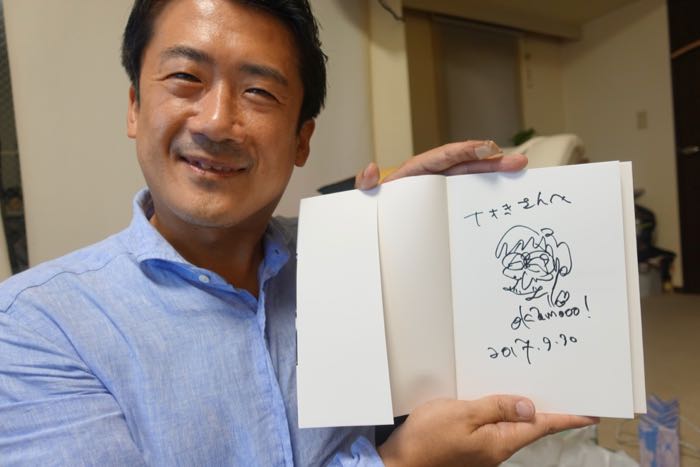 ナオキさんへ
okamooo!
2017.9.20